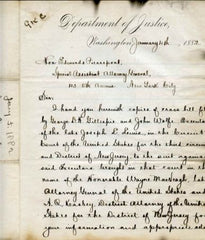 Department of Justice,
Washington, January 4th, 1882.
Hon. Edwards Pierrepont,
Special Assistant Attorney General,
New York City
Sir:
I hand you herewith copies of cross bill filed
by George D. H. Gillespie and John Wolfe, Executors
of the late Joseph L. Lewis, in the Circuit
Court of the United States for the third circuit
and District of New Jersey to the suit against
said Executors brought in that court in the
name of the Honorable Wayne MacVeagh, late
Attorney General of the United States and
A. Q. Keasbey, District Attorney of the United
States for the District of New Jersey for
your information and appropriate
Jany 5, 1882